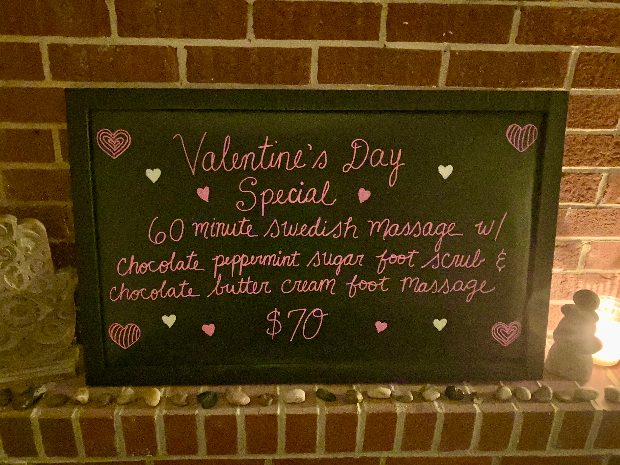 Valentine's Day
Special
60 minute swedish massage w/
chocolate peppermint sugar foot scrub &
chocolate butter cream foot massage
$70